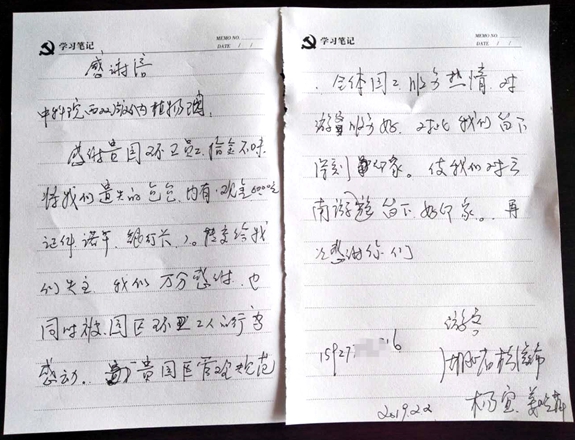 学习笔记
MEMO NO.
DATE / /
感谢信
中科院西双版纳植物园:
感谢贵园环卫员工,拾金不昧
将我们遗失的包包,内有(现金6000元
证件 诺午、银行卡、)。转交给我
们失主 我们万分感谢,也
同时被园区环卫工人的行为
感动。贵园区管理规范
学习笔记
MEMO NO.
DATE / /
、全体员工服务热情,对
游客服务好,对此我们留下
深刻印象。使我们对云
南游程留下好印象。再
次感谢你们
游客
15927 16
湖北省松滋市
杨宜
2019.2.2